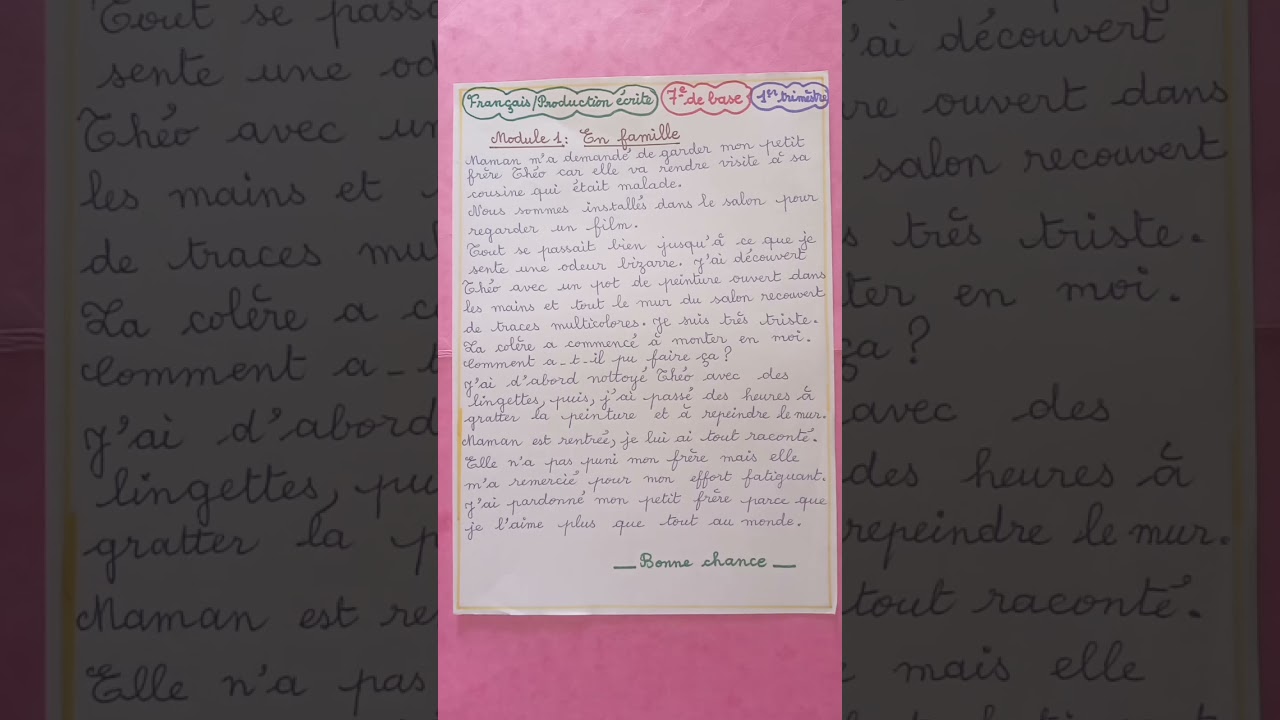 Français/Production écrite 7e de base 1er trimèstre
Module 1: En famille
Maman m'a demandé de garder mon petit
frère Théo car elle va rendre visite à sa
cousine qui était malade.
Nous sommes installés dans le salon pour
regarder un film.
Tout se passait bien jusqu'à ce que je
sente une odeur bizarre. J'ai découvert
Théo avec un pot de peinture ouvert dans
les mains et tout le mur du salon recouvert
de traces multicolores. Je suis très triste.
La colère a commencé à monter en moi.
Comment a-t-il pu faire ça?
J'ai d'abord nottoyé Théo avec des
lingettes, puis, j'ai passé des heures à
gratter la peinture et à repeindre le mur.
Maman est rentrée, je lui ai tout raconté.
Elle n'a pas puni mon frère mais elle
m'a remercié pour mon effort fatiguant.
J'ai pardonné mon petit frère parce que
je l'aime plus que tout au monde.
_ Bonne chance _